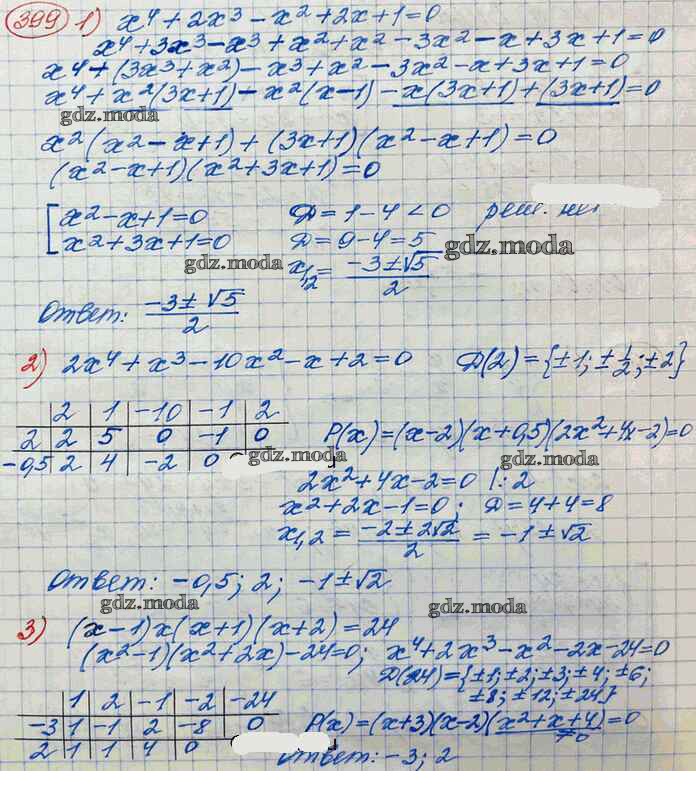 399 1) x⁴ + 2x³ - x² + 2x + 1 = 0
x⁴ + 3x³ - x³ + x² + x² - 3x² - x + 3x + 1 = 0
x⁴ + (3x³ + x²) - x³ + x² - 3x² - x + 3x + 1 = 0
x⁴ + x²(3x+1) - x²(x-1) - x(3x+1) + (3x+1) = 0
gdz.moda
x²(x² - x + 1) + (3x+1)(x² - x + 1) = 0
(x² - x + 1)(x² + 3x + 1) = 0
[ x² - x + 1 = 0 Д = 1 - 4 < 0 реш. нет
x² + 3x + 1 = 0 Д = 9 - 4 = 5
gdz.moda gdz.moda
x₁,₂ = (-3 ± √5)/2
Ответ: (-3 ± √5)/2
2) 2x⁴ + x³ - 10x² - x + 2 = 0 Д(2) = {±1; ±1/2; ±2}
2 1 -10 -1 2
2 2 5 0 -1 0 P(x) = (x-2)(x+0,5)(2x²+4x-2) = 0
-0,5 2 4 -2 0
gdz.moda gdz.moda
2x² + 4x - 2 = 0 |: 2
x² + 2x - 1 = 0; Д = 4 + 4 = 8
x₁,₂ = (-2 ± 2√2)/2 = -1 ± √2
Ответ: -0,5; 2; -1 ± √2
gdz.moda gdz.moda
3) (x-1)x(x+1)(x+2) = 24
(x²-1)(x²+2x) - 24 = 0; x⁴ + 2x³ - x² - 2x - 24 = 0
Д(24) = {±1; ±2; ±3; ±4; ±6;
±8; ±12; ±24}
1 2 -1 -2 -24
-3 1 -1 2 -8 0 P(x) = (x+3)(x-2)(x²+x+4) = 0
≠0
2 1 1 4 0
Ответ: -3; 2